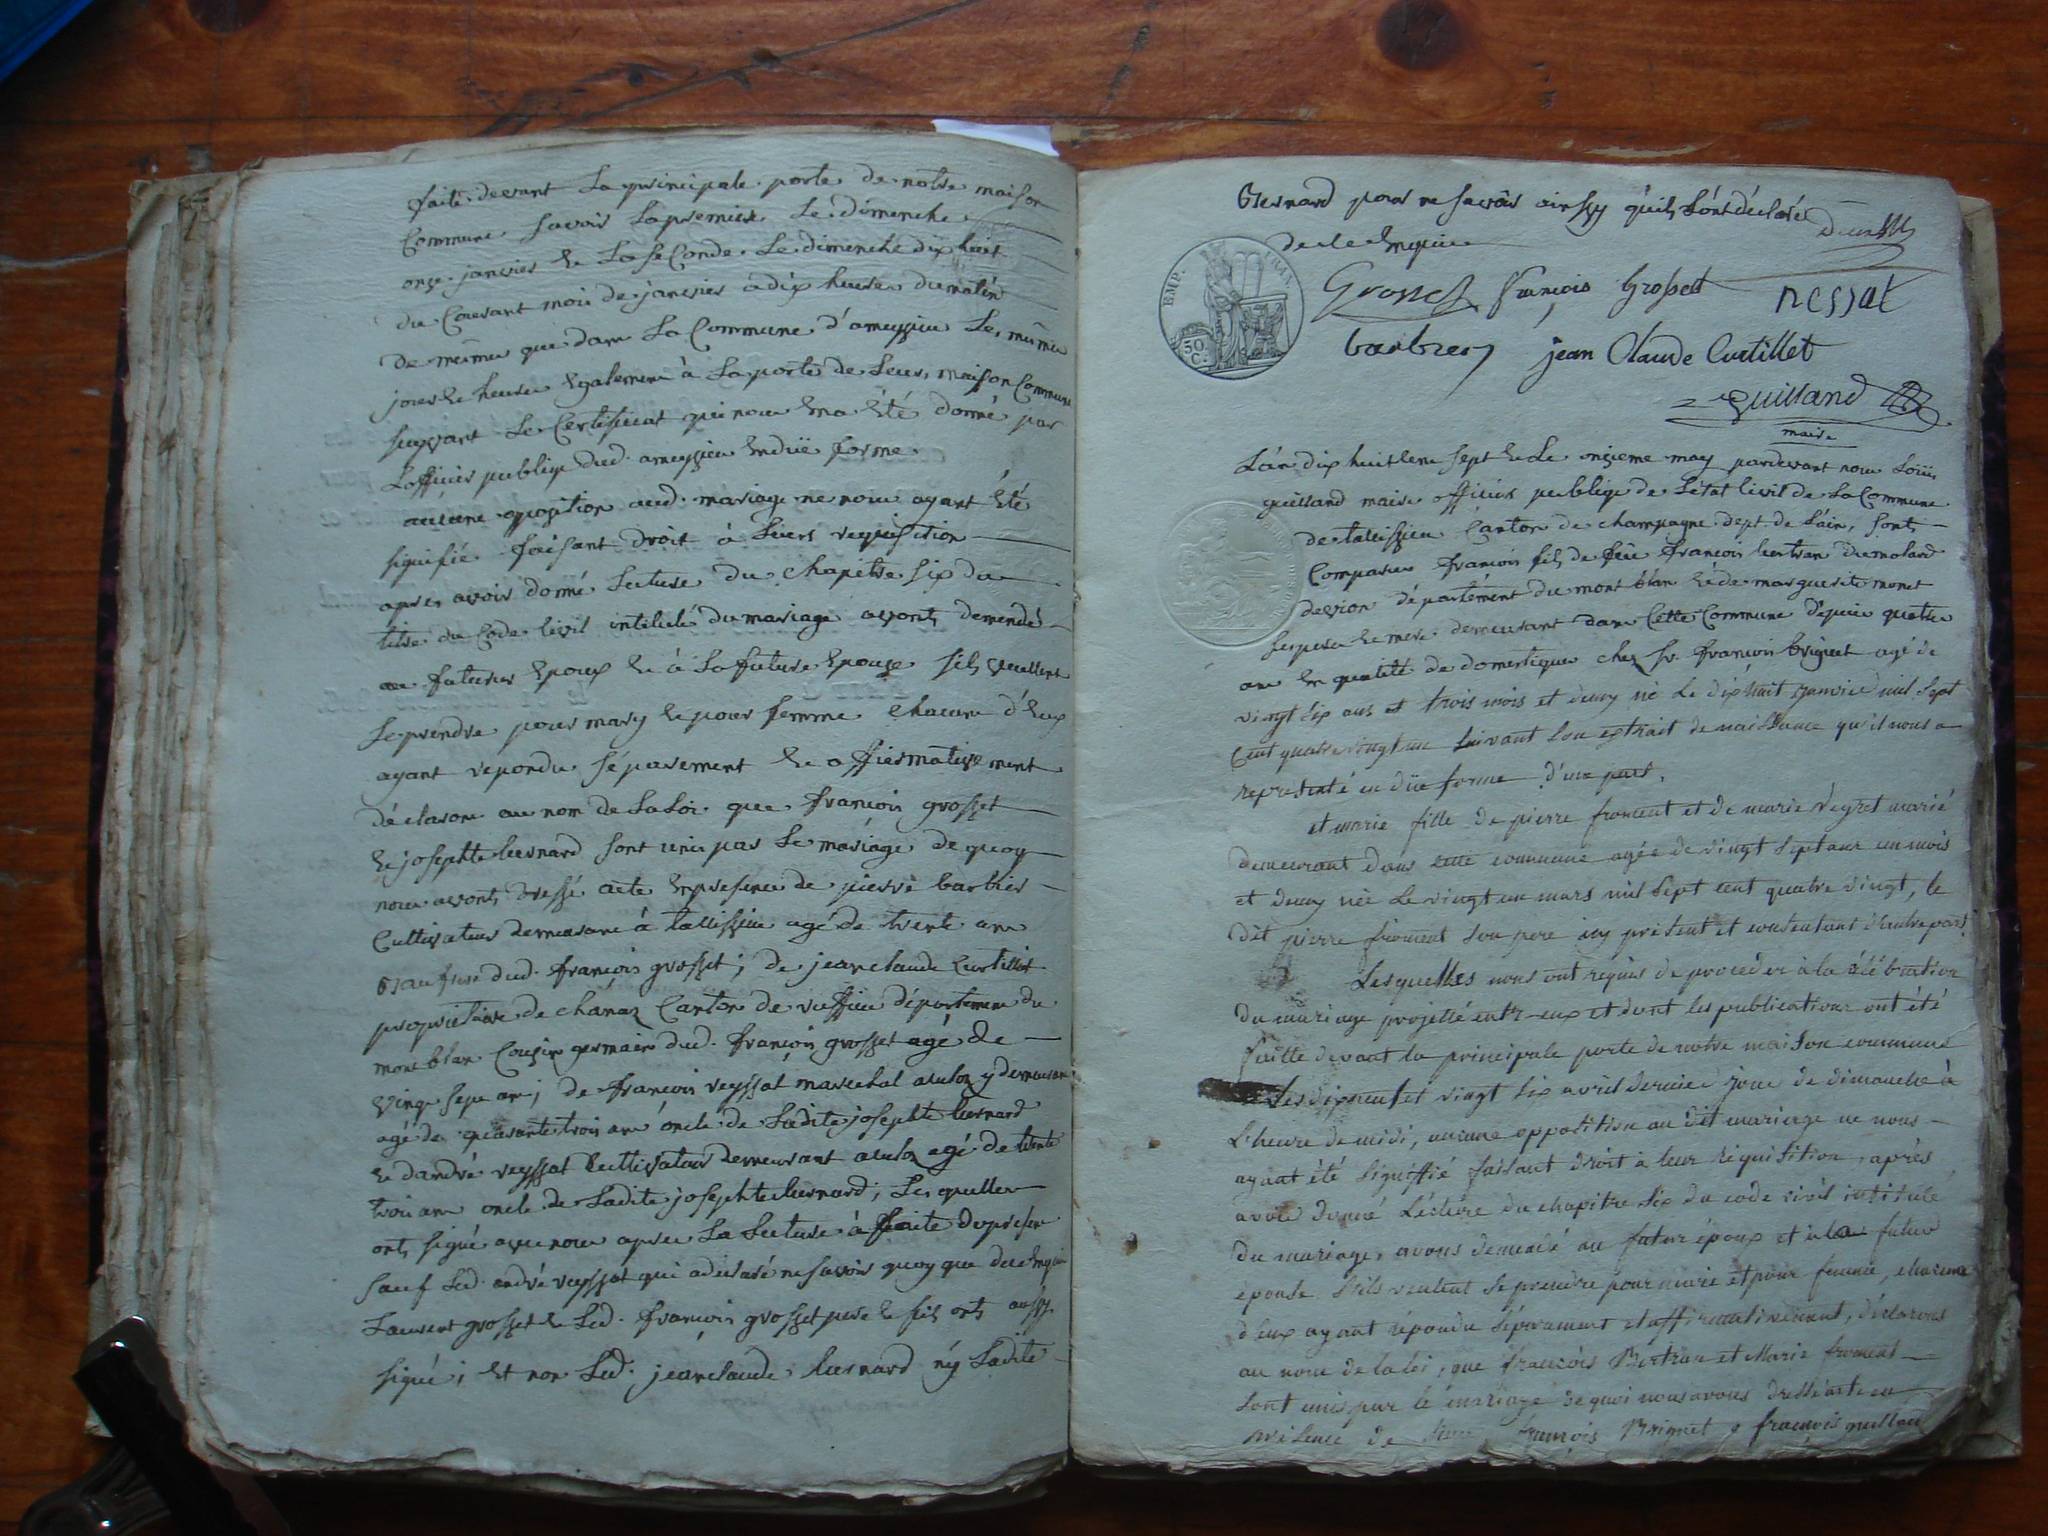 faite devant La principale porte de notre maison
Commune Savoir La premiere Le dimenche
onze janvier Et La Seconde Le dimenche dix huit
du Courant mois de janvier a dix heures du matin
de meme que dans La Commune d'ameyzieu Les meme
jour Et heure Egalement à La porte de Leur maison Commune
suyvant Le Certificat qui nous En a Eté donné par
Lofficier publiqe dud. ameyzieu En düe forme.
aucune opposition aud. mariage ne nous ayant Eté
signifié faisant droit à Leurs requisition
apres avoir donné Lecture du chapitre six du
titre du Code Civil intitulé du mariage avons demendé
au futur Epoux Et à La future Epouze sils veullent
Se prendre pour mary Et pour femme Chacun d'Eux
ayant repondu séparement Et affirmativement
déclarons au nom de La Loi que francois grosset
Et josephte bernard sont unis par Le mariage de quoy
nous avons dressé acte En presence de pierre barbier
Cultivateur demeurant à talissieu agé de trente ans
Beaufrere dud. francois grosset; de jean claude Curtillet
proprietaire de chanaz Canton de ruffieu département du
mont blan Cousin germain dud. francois grosset agé de
vingt sept ans; de francois reyssat marechal a culoz y demeurant
agé de quarante trois ans oncle de Ladite josephte bernard
Et dandré reyssat Cultivateur demeurant a culoz agé de trente
trois ans oncle de Ladite josephte bernard; Les quelles
ont signé avec nous apres La Lecture à faite du present
sauf Led. andré reyssat qui a déclaré ne savoir quoy que de ce Enquis
Laurent grosset Et Led. francois grosset pere Et fils ont aussy
signé; Et non Led. jean claude bernard ny Ladite
Bernard pour ne savoir ainssy quils Lont déclaré
de ce Enquis
EMP. FRAN.
50 C.
Grosset françois Grosset ressat
barbier jean Claude Curtillet
Guilland
maire
L'an dix huit Cent sept Et Le onzieme may pardevant nous Loüis
guilland maire officier publiqe de L'état Civil de La Commune
de talissieu Canton de champagne dept. de Lain, sont
Comparu francois fils de feüe francois bertran du molard
de vion département du mont blan Et de marguerite monet
ses pere Et mere demeurant dans Cette Commune depuis quatre
ans En qualité de domestique chez sr. francois brignet agé de
vingt six ans et trois mois et demy né Le dix huit janvier mil sept
Cent quatre vingt un suivant son extrait de naissance qu'il nous a
representé en düe forme d'une part.
et marie fille de pierre froment et de marie Veyret marié
demeurant dans cette commune agée de vingt sept ans un mois
et demy née Le vingt un mars mil sept cent quatre vingt, le
dit pierre froment son pere icy présent et consentant d'autre part.
Lesquelles nous ont requis de proceder à la célébration
du mariage projetté entr-eux et dont les publications ont été
faitte devant la principale porte de notre maison commune
Les dix neuf et vingt six avril dernier jour de dimanche à
L'heure de midi, aucune opposition au dit mariage ne nous
ayant été signiffié faisant droit à leur réquisition, après
avoir donné Lécture du chapitre six du code civil intitulé
du mariage, avons demandé au futur époux et à la futur
epouse s'ils veulent se prendre pour marie et pour femme, chacune
d'eux ayant répondu séparament et affirmativement, déclarons
au nom de la loi, que françois Bertran et Marie froment
sont unis par le mariage de quoi nous avons dressé acte en
présence de francois Brignet, francois guilland